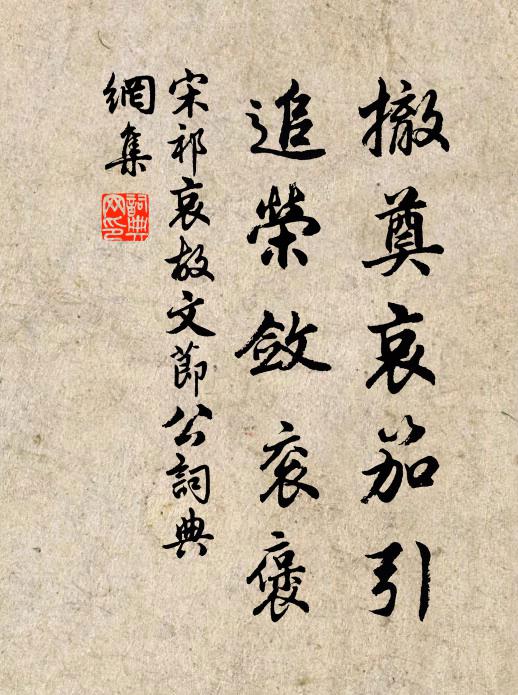 撤奠哀笳引
追榮斂衮褒
宋祁哀故文節公詞典
網集
詞典網印